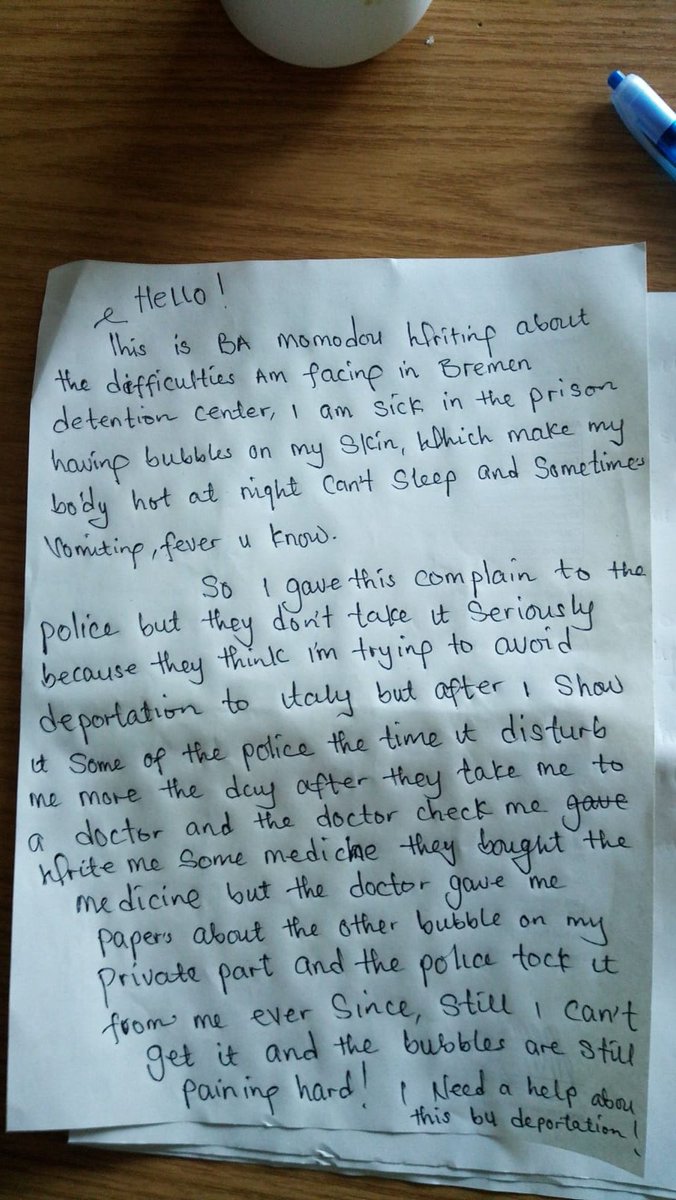 Hello!
This is BA momodou Writing about
the difficulties Am facing in Bremen
detention center, I am sick in the prison
having bubbles on my skin, Which make my
body hot at night Can't Sleep and Sometimes
Vomiting, fever u know.
So I gave this complain to the
police but they don't take it Seriously
because they think i'm trying to avoid
deportation to italy but after I Show
it Some of the police the time it disturb
me more the day after they take me to
a doctor and the doctor check me gave
Write me Some medicine they bought the
medicine but the doctor gave me
papers about the other bubble on my
private part and the police tock it
from me ever Since, Still I can't
get it and the bubbles are still
paining hard! I Need a help abou
this b4 deportation!